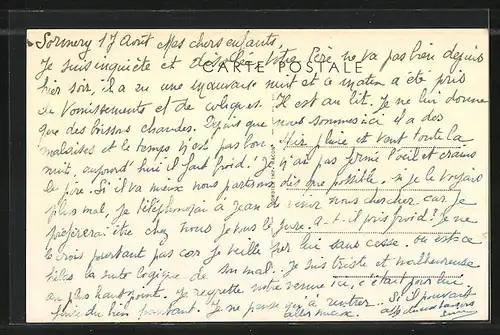 Sommery 17 Août Mes chers enfants,
Je suis inquiète et désolée. Votre Père ne va pas bien depuis
CARTE POSTALE
hier soir, il a eu une mauvaise nuit et ce matin a été pris
de vomissements et de coliques. Il est au lit. Je ne lui donne
que des boissons chaudes. Depuis que nous sommes ici il a des
malaises et le temps n'est pas bon. Hier pluie et vent toute la
nuit, aujourd'hui il fait froid. Je n'ai pas fermé l'oeil et crains
le pire. Si il va mieux nous partirons dès que possible. si je le voyais
plus mal, je téléphonerai à Jean de venir nous chercher car je
préfèrerai être chez nous je vous le jure. a-t-il pris froid? Je ne
crois pourtant pas car je veille sur lui sans cesse. ou est-ce
hélas la suite logique de son mal. Je suis triste et malheureuse
au plus haut point. Je regrette notre venue ici, c'était pour lui
faire du bien pourtant. Je ne pense qu'à rentrer. Si il pouvait
aller mieux.